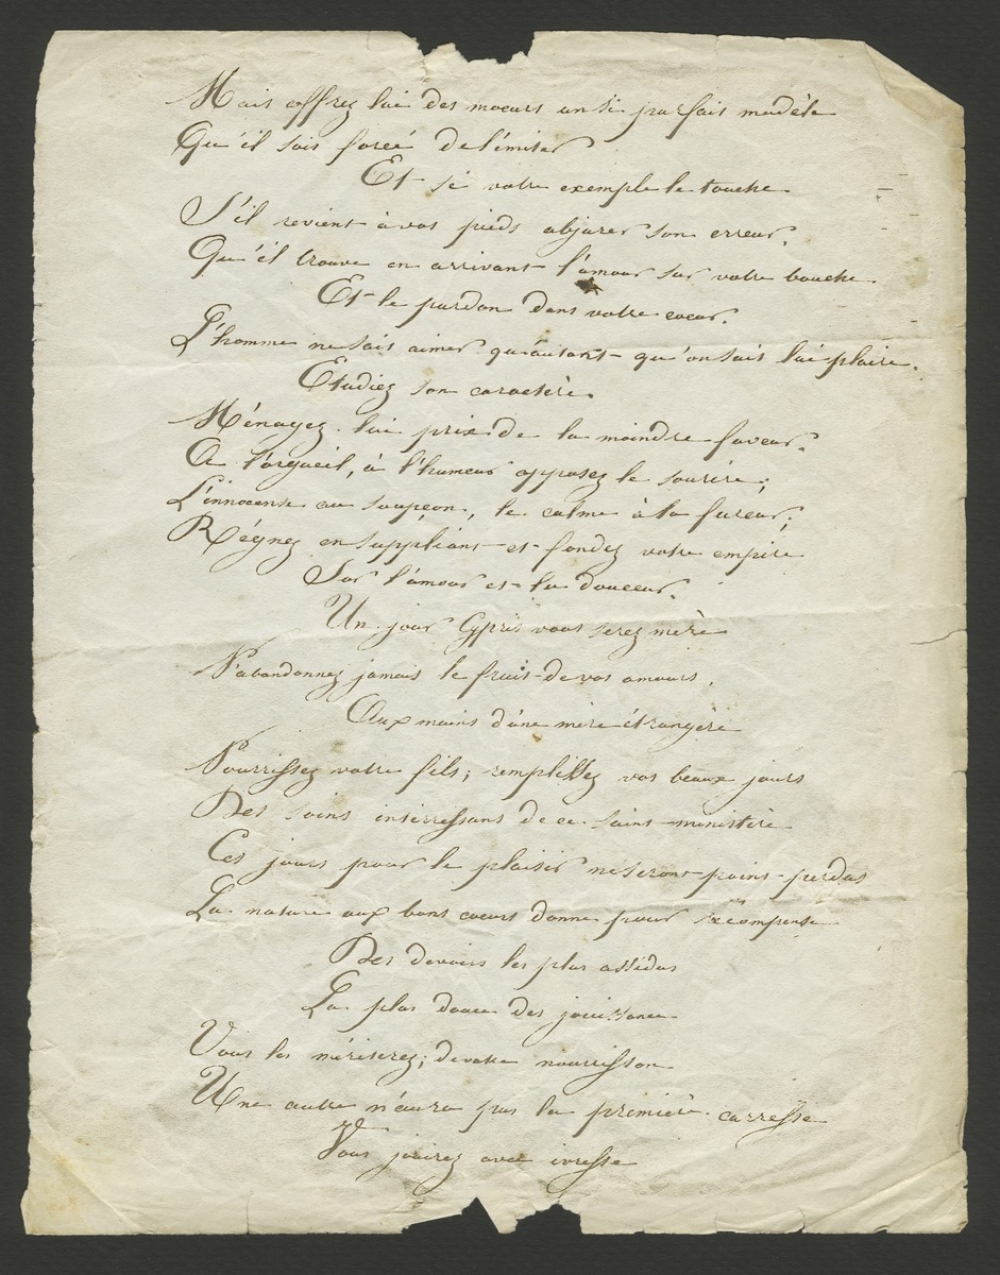 Mais offrez lui des moeurs un si parfait modèle
Qu'il soit forcé de l'imiter
Et si votre exemple le touche
S'il revient à vos pieds abjurer son erreur,
Qu'il trouve en arrivant l'amour sur votre bouche
Et le pardon dans votre coeur.
L'homme ne sait aimer qu'autant qu'on sait lui plaire.
Etudiez son caractère.
Ménagez lui prix de la moindre faveur.
A l'orgueil, à l'humeur opposez le sourire;
L'innocense au soupçon, le calme à la fureur;
Régnez en suppliant et fondez votre empire
Sur l'amour et la douceur.
Un jour Cypris vous serez mère
N'abandonnez jamais le fruit de vos amours,
Aux mains d'une mère étrangère
Nourrissez votre fils; remplissez vos beaux jours
Des soins interressans de ce saint ministère
Ces jours pour le plaisir ne seront point perdus
La nature aux bons coeurs donne pour récompense
Des devoirs les plus assidus
La plus douce des jouissance
Vous les mériterez; de votre nourrisson
Une autre n'aura pas la première carresse
Vous jouirez avec ivresse